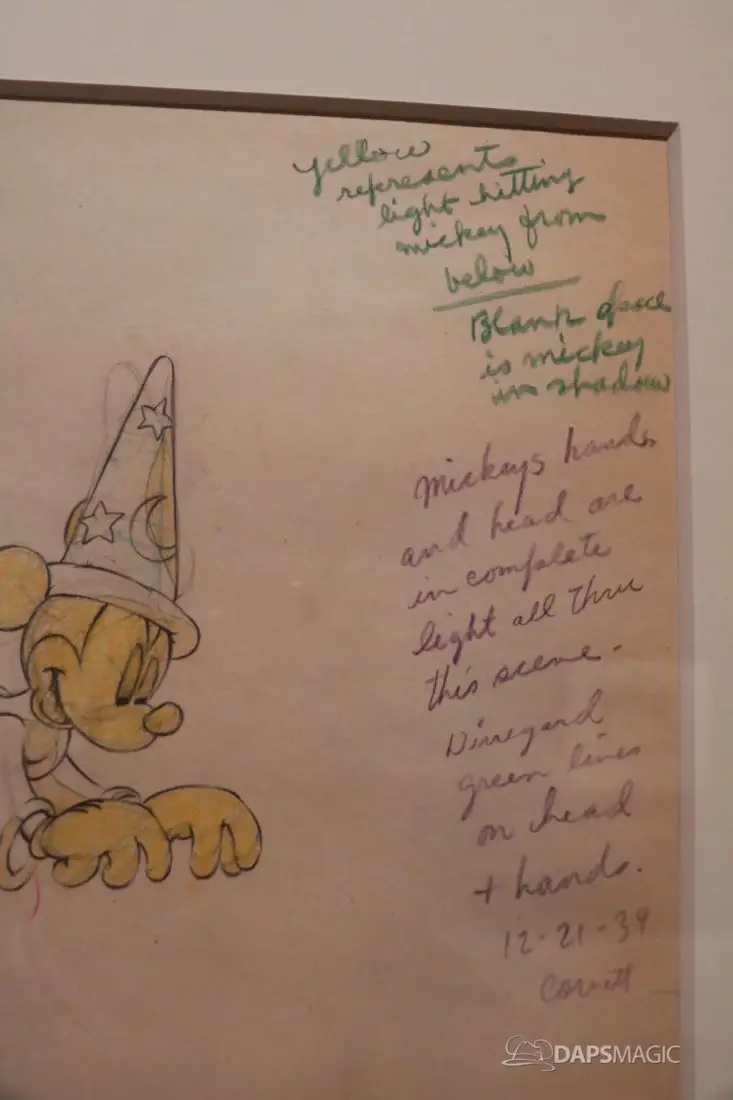 yellow
represents
light hitting
mickey from
below
Blank space
is mickey
in shadow
Mickeys hands
and head are
in complete
light all thru
this scene.
Disregard
green lines
on head
+ hands.
12-21-39
DAPSMAGIC